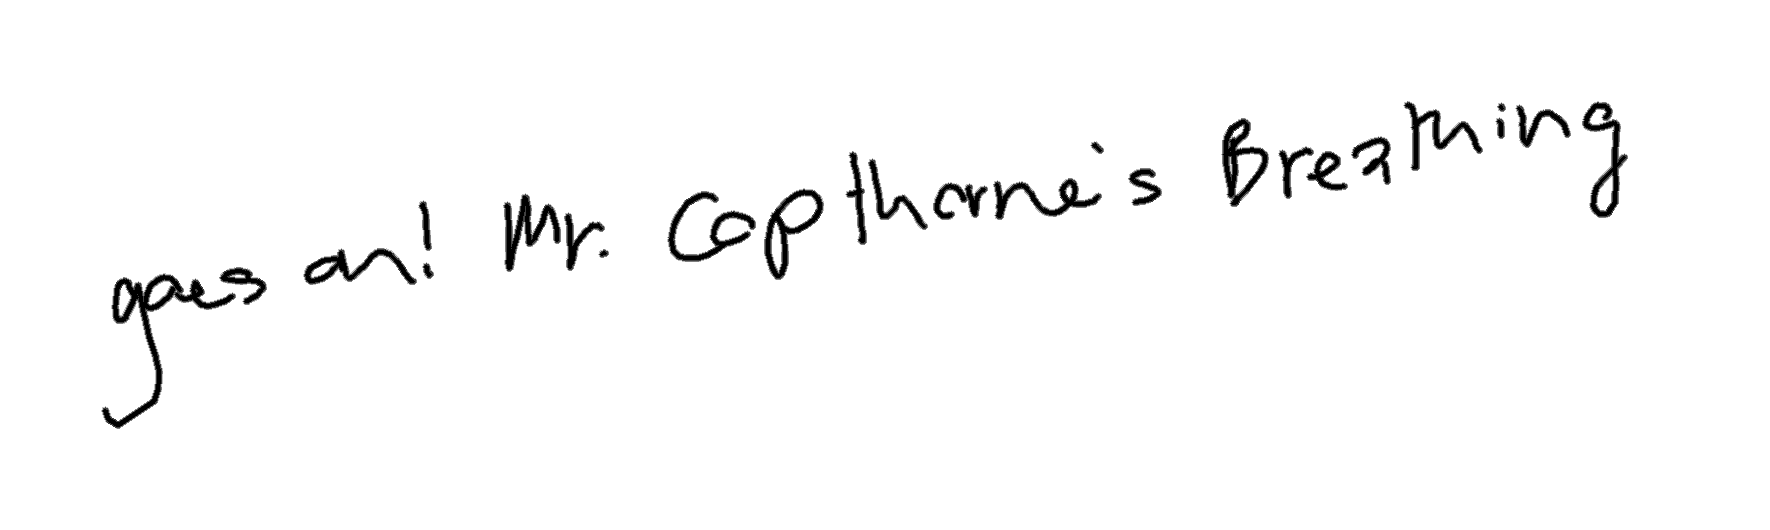 goes on! Mr. Copthorne's Breathing